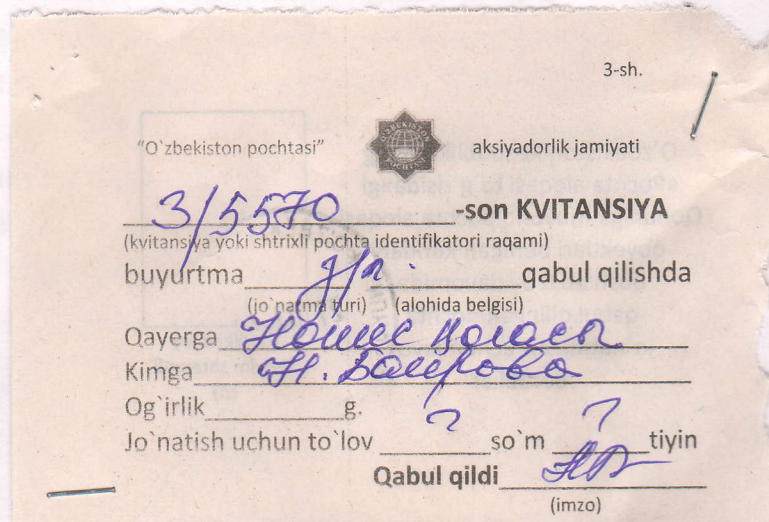 3-sh.
"O`zbekiston pochtasi" O'ZBEKISTON POCHTASI aksiyadorlik jamiyati
3/5570 -son KVITANSIYA
(kvitansiya yoki shtrixli pochta identifikatori raqami)
buyurtma qabul qilishda
(jo`natma turi) (alohida belgisi)
Qayerga
Kimga Н. Баирова
Og`irlik g.
Jo`natish uchun to`lov ? so`m ? tiyin
Qabul qildi
(imzo)